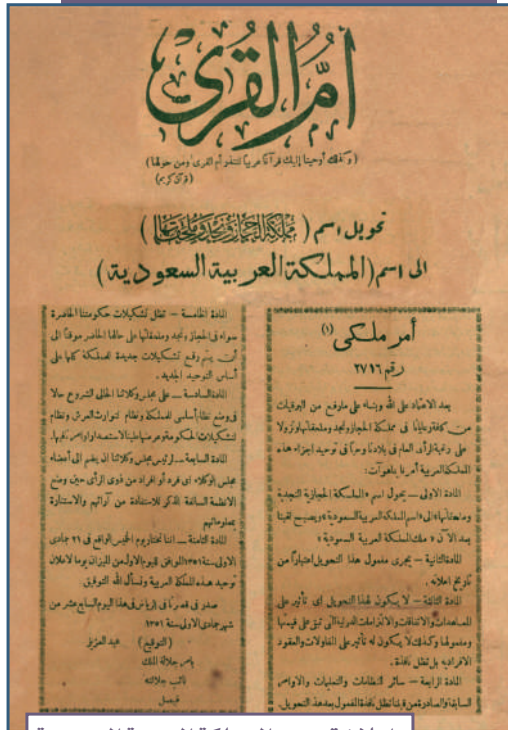 أم القرى
( وكذلك أوحينا إليك قرآنا عربيا لتنذر أم القرى ومن حولها )
( قرآن كريم )
تحويل اسم ( مملكة الحجاز ونجد وملحقاتها )
الى اسم ( المملكة العربية السعودية )
أمر ملكي (١)
رقم ٢٧١٦
بعد الاعتماد على الله وبناء على مارفع من البرقيات
من كافة رعايانا فى مملكة الحجاز ونجد وملحقاتها ونزولا
على رغبة الرأى العام فى بلادنا وحبا فى توحيد اجزاء هذه
المملكة العربية أمرنا بما هو آت :
المادة الاولى — يحول اسم « المملكة الحجازية النجدية
وملحقاتها » الى « اسم المملكة العربية السعودية » ويصبح لقبنا
بعد الآن « ملك المملكة العربية السعودية »
المادة الثانية — يجرى مفعول هذا التحويل اعتبارا من
تاريخ اعلانه .
المادة الثالثة — لا يكون لهذا التحويل اى تأثير على
المعاهدات والاتفاقات والالتزامات الدولية التى تبقى على قيمتها
ومفعولها وكذلك لا يكون له تأثير على المقاولات والعقود
الافرادية بل تظل نافذة .
المادة الرابعة — سائر النظامات والتعليمات والاوامر
السابقة والصادرة من قبلنا تظل نافذة المفعول بعد هذا التحويل .
المادة الخامسة — تظل تشكيلات حكومتنا الحاضرة
سواء فى الحجاز ونجد وملحقاتها على حالها الحاضر موقتا الى
أن يتم وضع تشكيلات جديدة للمملكة كلها على
أساس التوحيد الجديد .
المادة السادسة — على مجلس وكلائنا الحالى الشروع حالا
فى وضع نظام أساسى للمملكة ونظام لتوارث العرش ونظام
لتشكيلات الحكومة وعرضها علينا لاستصدار اوامرنا فيها .
المادة السابعة — لرئيس مجلس وكلائنا ان يضم الى أعضاء
مجلس الوكلاء اى فرد أو افراد من ذوى الرأى حين وضع
الانظمة السالفة الذكر للاستفادة من آرائهم والاستنارة
بمعلوماتهم
المادة الثامنة — اننا نختار يوم الخميس الواقع فى ٢١ جمادى
الاولى سنة ١٣٥١ الموافق لليوم الاول من الميزان يوما لاعلان
توحيد هذه المملكة العربية ونسأل الله التوفيق
صدر فى قصرنا فى الرياض فى هذا اليوم السابع عشر من
شهر جمادى الاولى سنة ١٣٥١
( التوقيع ) عبد العزيز
بامر جلالة الملك
نائب جلالته
فيصل